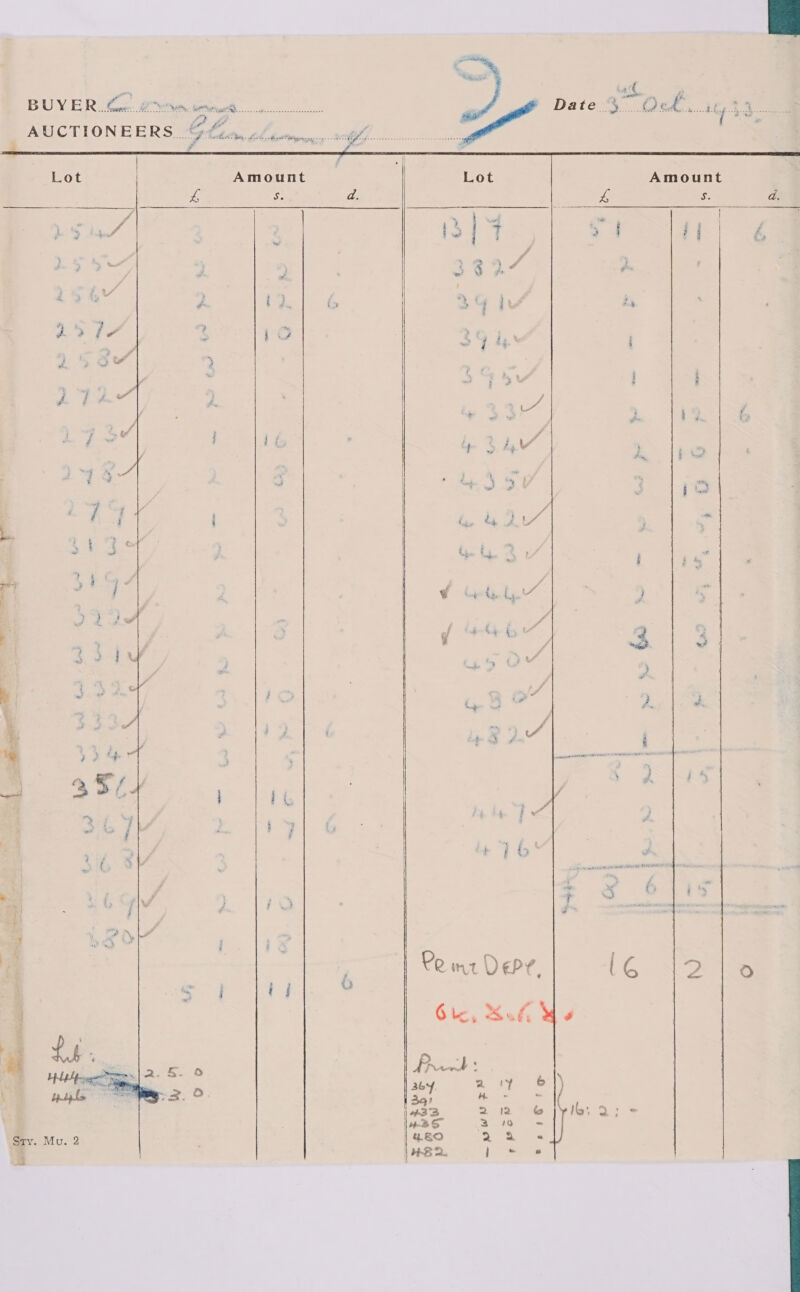 BUYER
2
Date 3rd Oct. 1933
AUCTIONEERS Glendining
Lot Amount Lot Amount
£ s. d. £ s. d.
254 3 3
255 2 2
256 2 12 6
257 3 10
258 3
272 2
273 1 16
278 2 3
279 1 3
313 2
319 2
322 2 3
331 2
332 3 10
333 2 12 6
334 3 5
356 1 16
367 2 17 6
368 3
369 2 10
380 1 18
51 11 6
B/F 51 11 6
382 2
391 4
394 1
395 1 1
433 2 12 6
434 2 10
435 3 10
442 2 5
443 1 15
444 2 5
446 3 3
450 2
480 2 2
482 1
82 15
447 2
476 2
£ 86 15
Print Dept, 16 2 0
Lib:
444 2. 5. 0
446 3. 3. 0
Print:
367 2 17 6
391 4 - -
433 2 12 6
435 3 10 -
480 2 2 -
482 1 - -
16: 2: -
Sry. Mu. 2